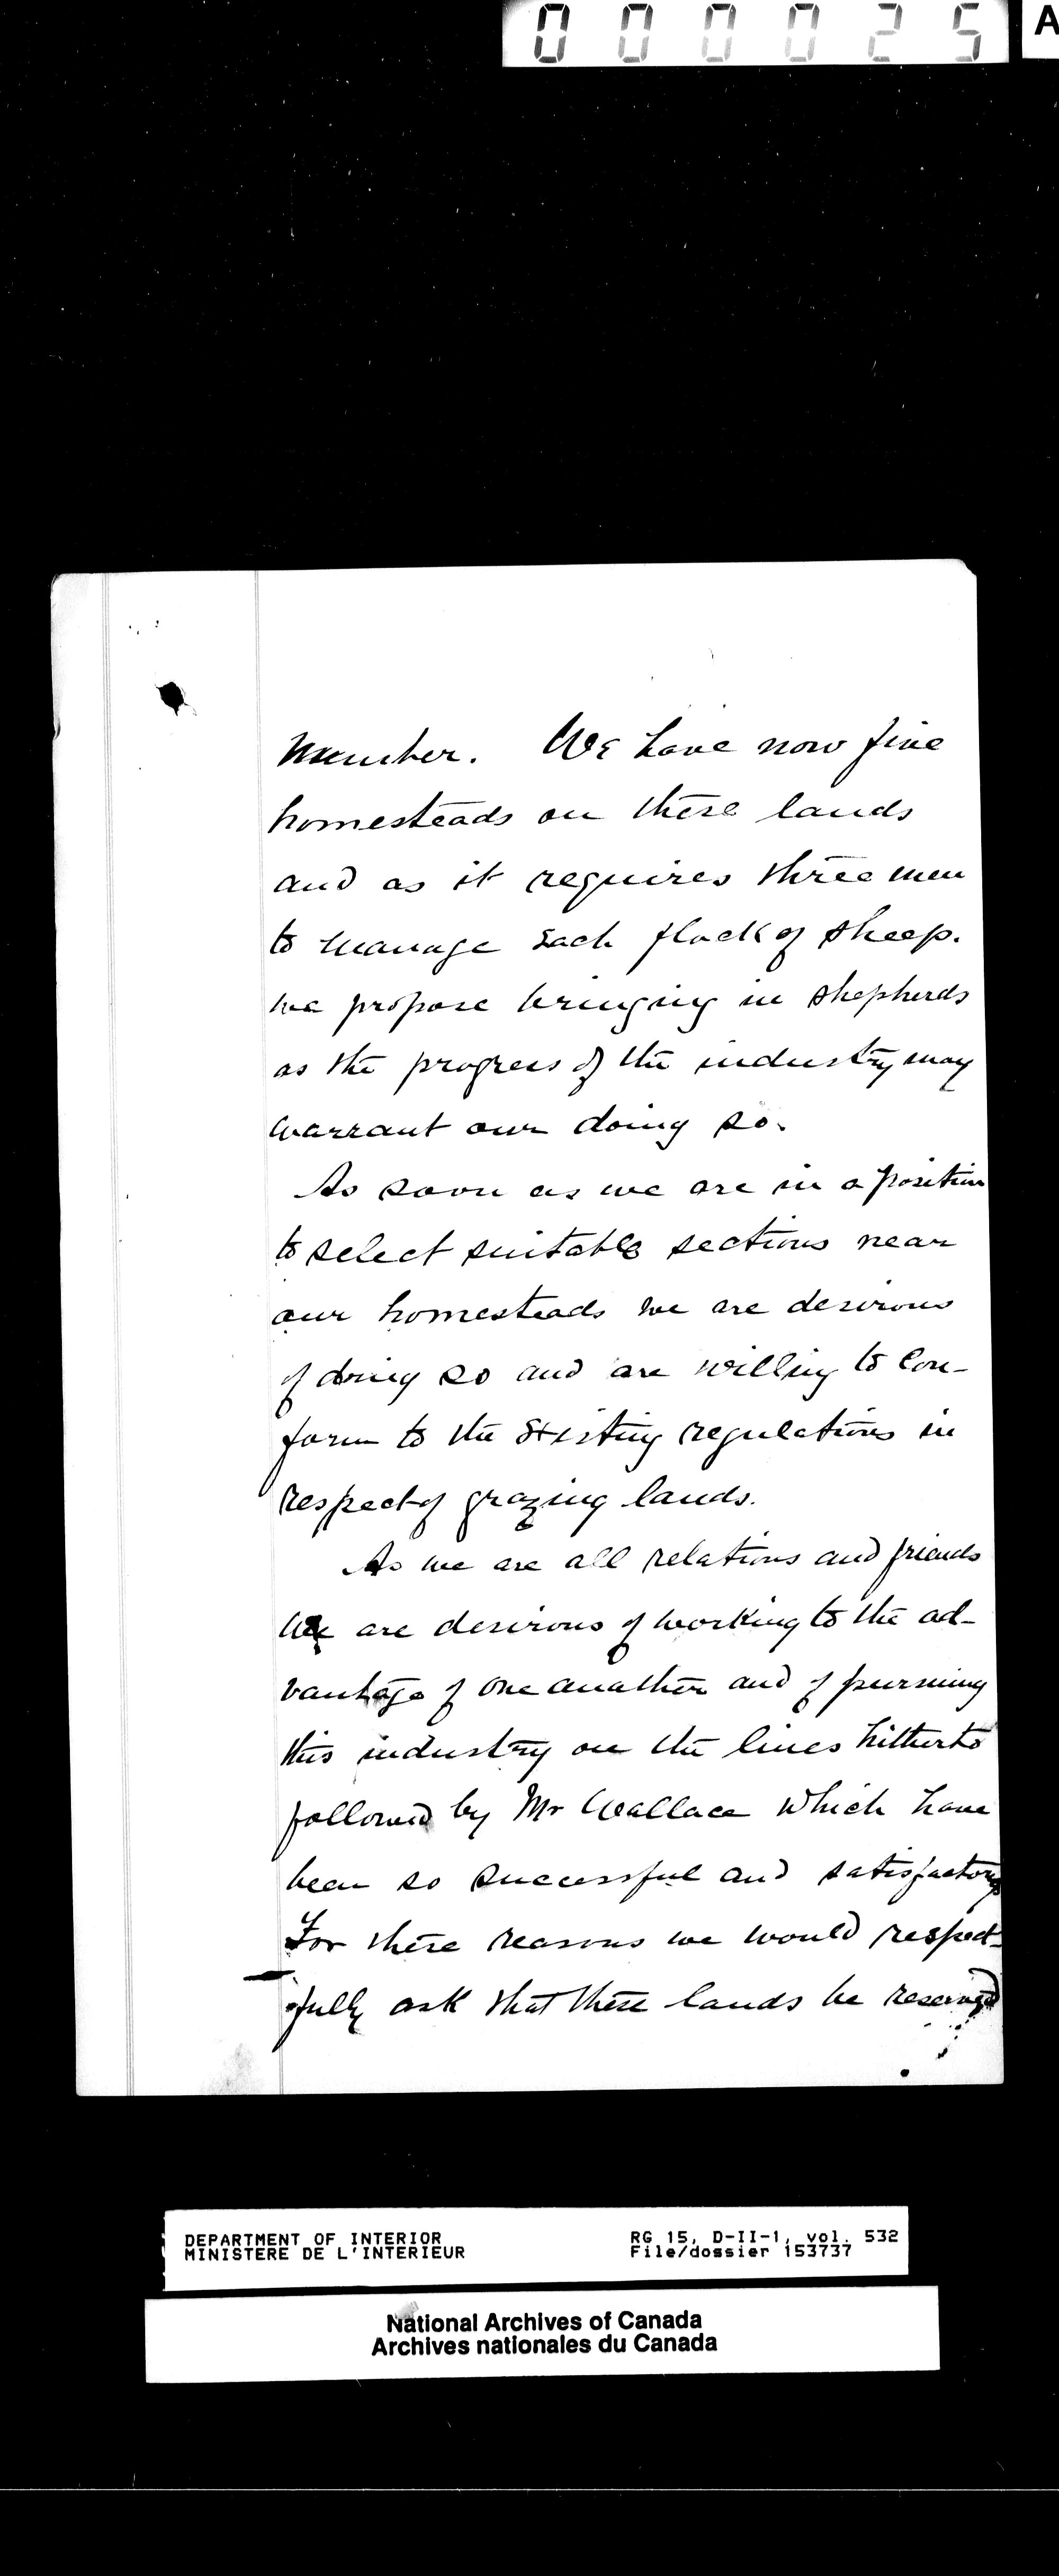 000025
A
number. We have now five
homesteads on these lands
and as it requires three men
to manage each flock of sheep.
we propose bringing in shepherds
as the progress of the industry may
warrant our doing so.
As soon as we are in a position
to select suitable sections near
our homesteads we are desirous
of doing so and are willing to con-
form to the existing regulations in
respect of grazing lands.
As we are all relations and friends
We are desirous of working to the ad-
vantage of one another and of pursuing
this industry on the lines hitherto
followed by Mr Wallace which have
been so successful and satisfactory
For these reasons we would respect-
fully ask that these lands be reserved
DEPARTMENT OF INTERIOR RG 15, D-II-1, vol. 532
MINISTERE DE L'INTERIEUR File/dossier 153737
National Archives of Canada
Archives nationales du Canada